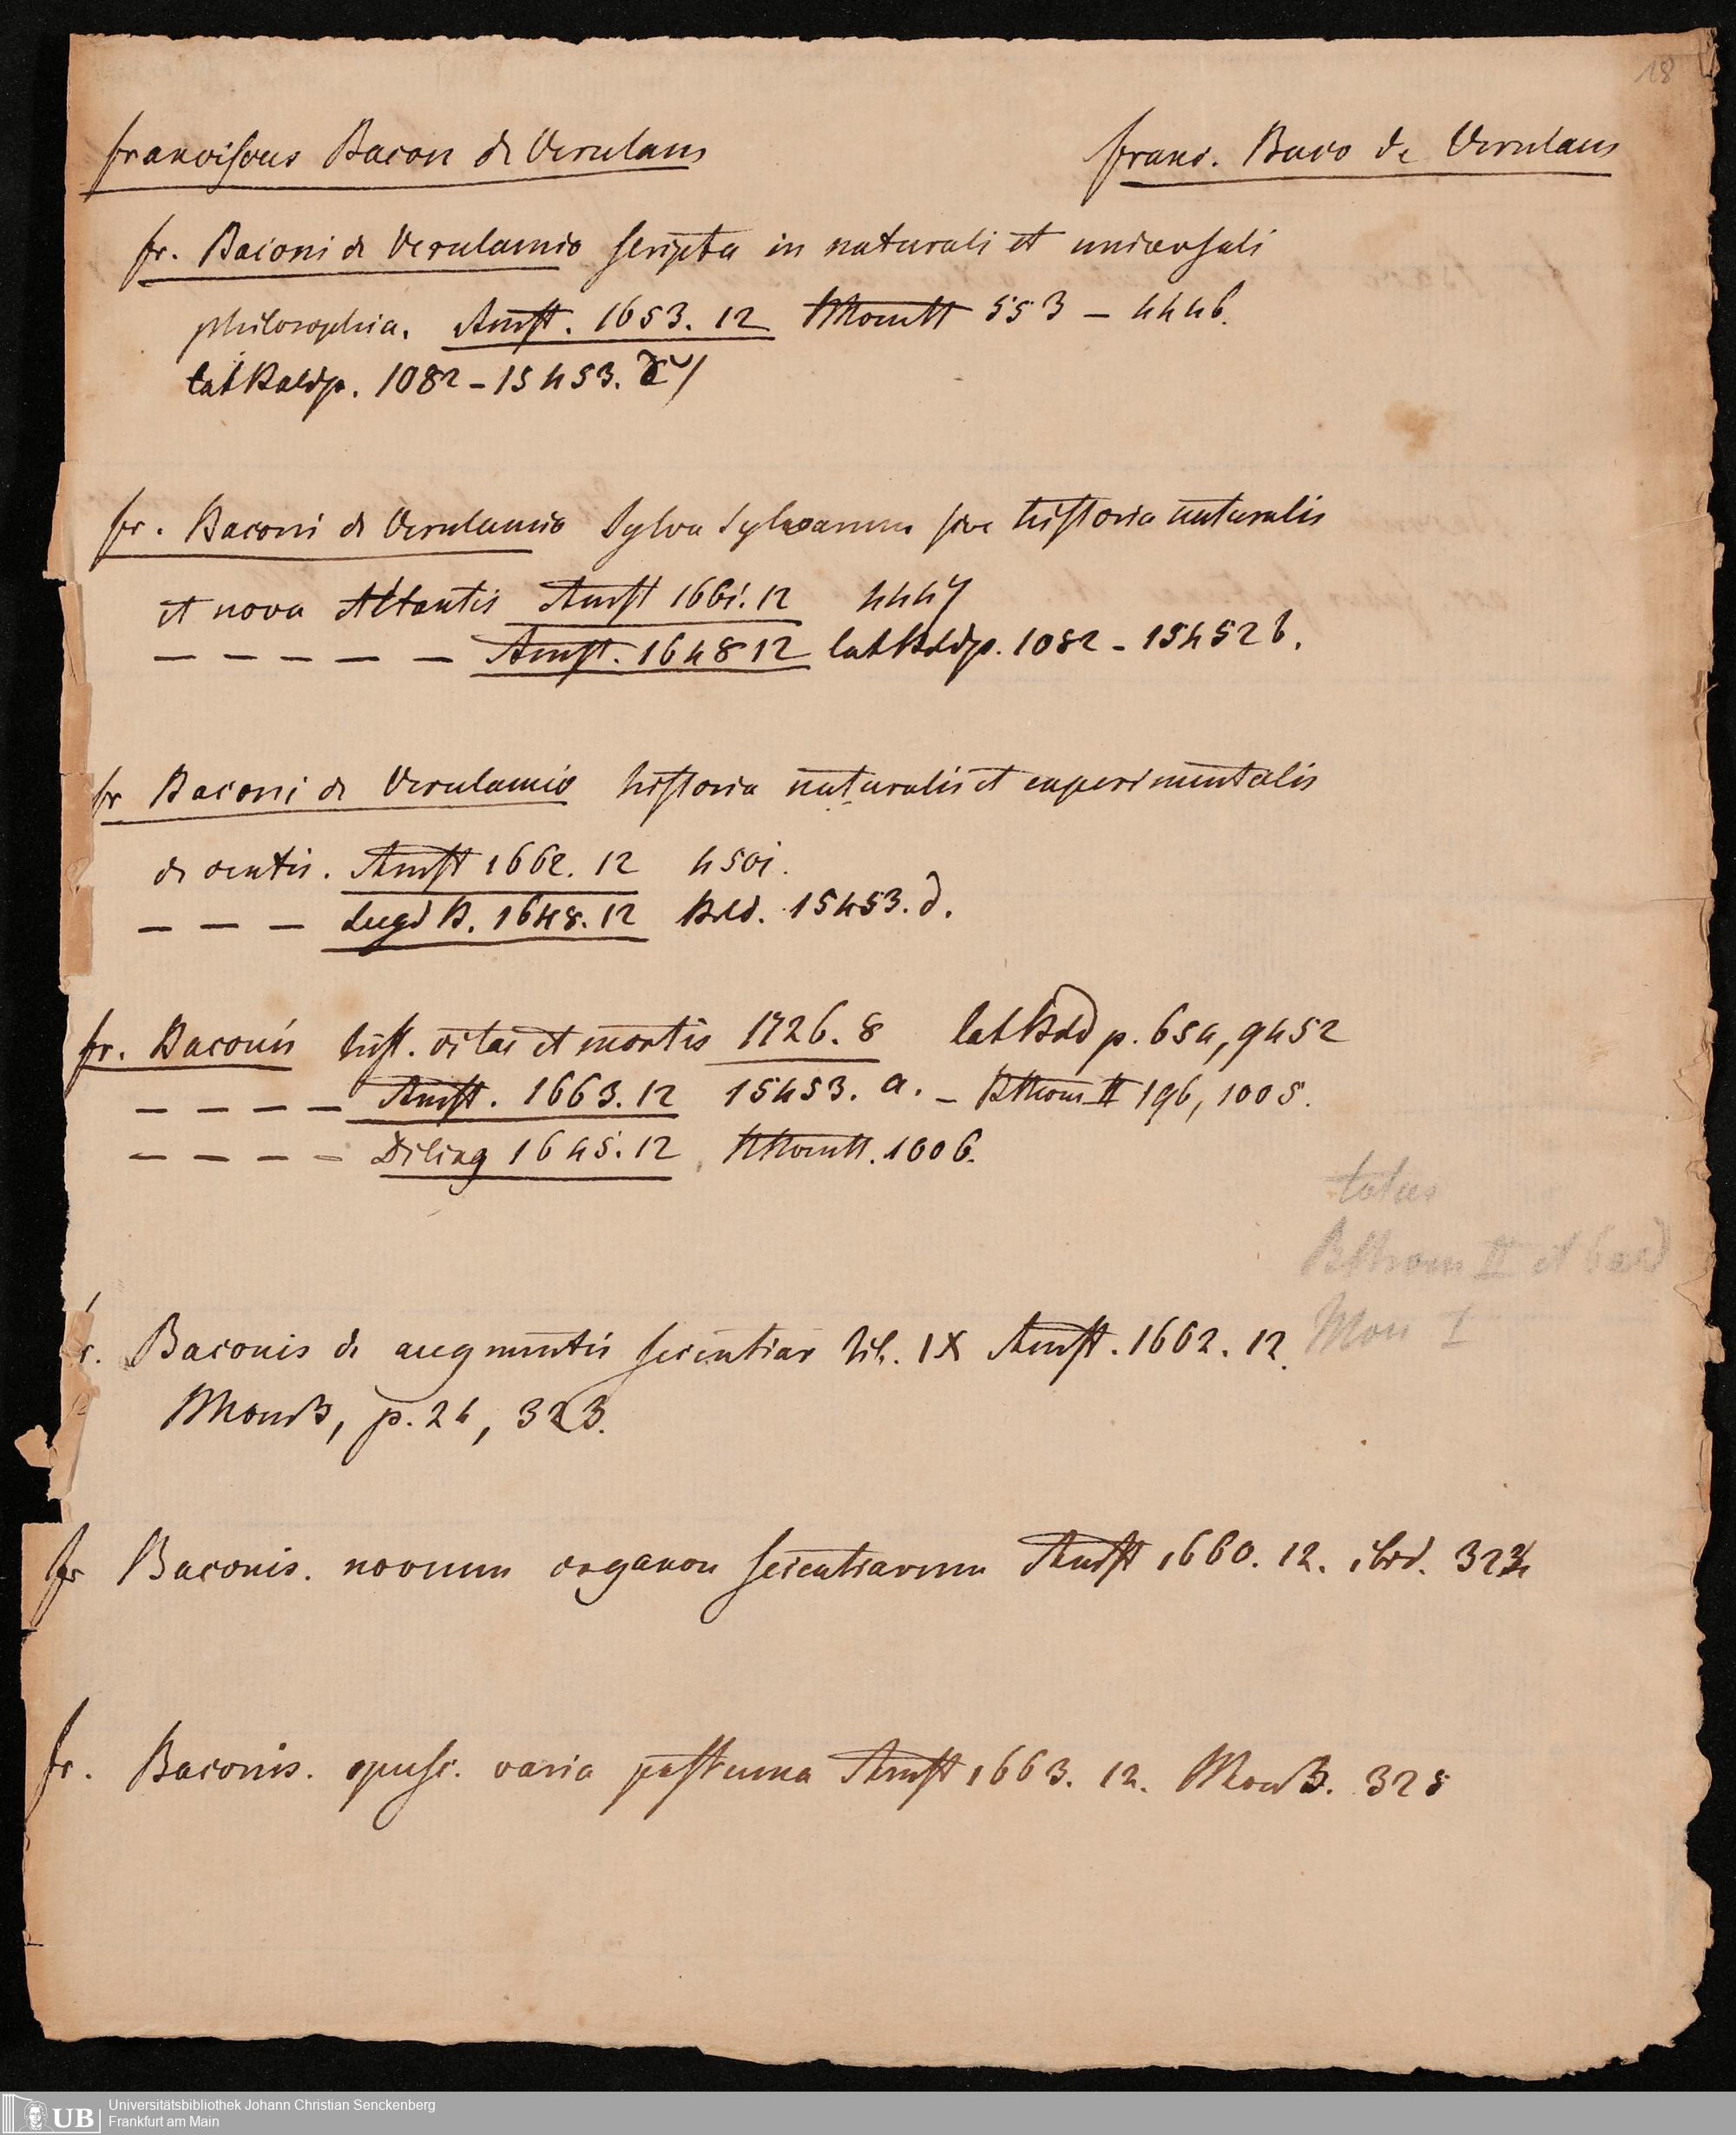 18
Franciscus Bacon de Verulam
Franc. Baco de Verulam
fr. Baconi de Verulamio scripta in naturali et universali
philosophia. Amst. 1653. 12 553 – 4446.
p. 1082 – 15453. c
fr. Baconi de Verulamio Sylva Sylvarum sive historia naturalis
et nova Atlantis Amst 1661. 12 4447
– – – – – Amst. 1648 12 p. 1082 – 15452 b.
fr Baconi de Verulamio historia naturalis et experimentalis
de ventis. Amst 1662. 12 4501.
– – – Lugd B. 1648. 12 Bald. 15453. d.
fr. Baconis hist. vitae et mortis 1726. 8 p. 654, 9452
– – – – Amst. 1663. 12 15453. a. – BThom II 196, 1005.
– – – – Diling 1645. 12 1006.
BThom II et bald
Mon I
Baconis de augmentis scientiar lib. IX Amst. 1662. 12.
p. 26, 323.
fr Baconis. novum organon scientiarum Amst 1660. 12. ibid. 324
fr. Baconis. opusc. varia postuma Amst 1663. 12. 325
Universitätsbibliothek Johann Christian Senckenberg
Frankfurt am Main
UB